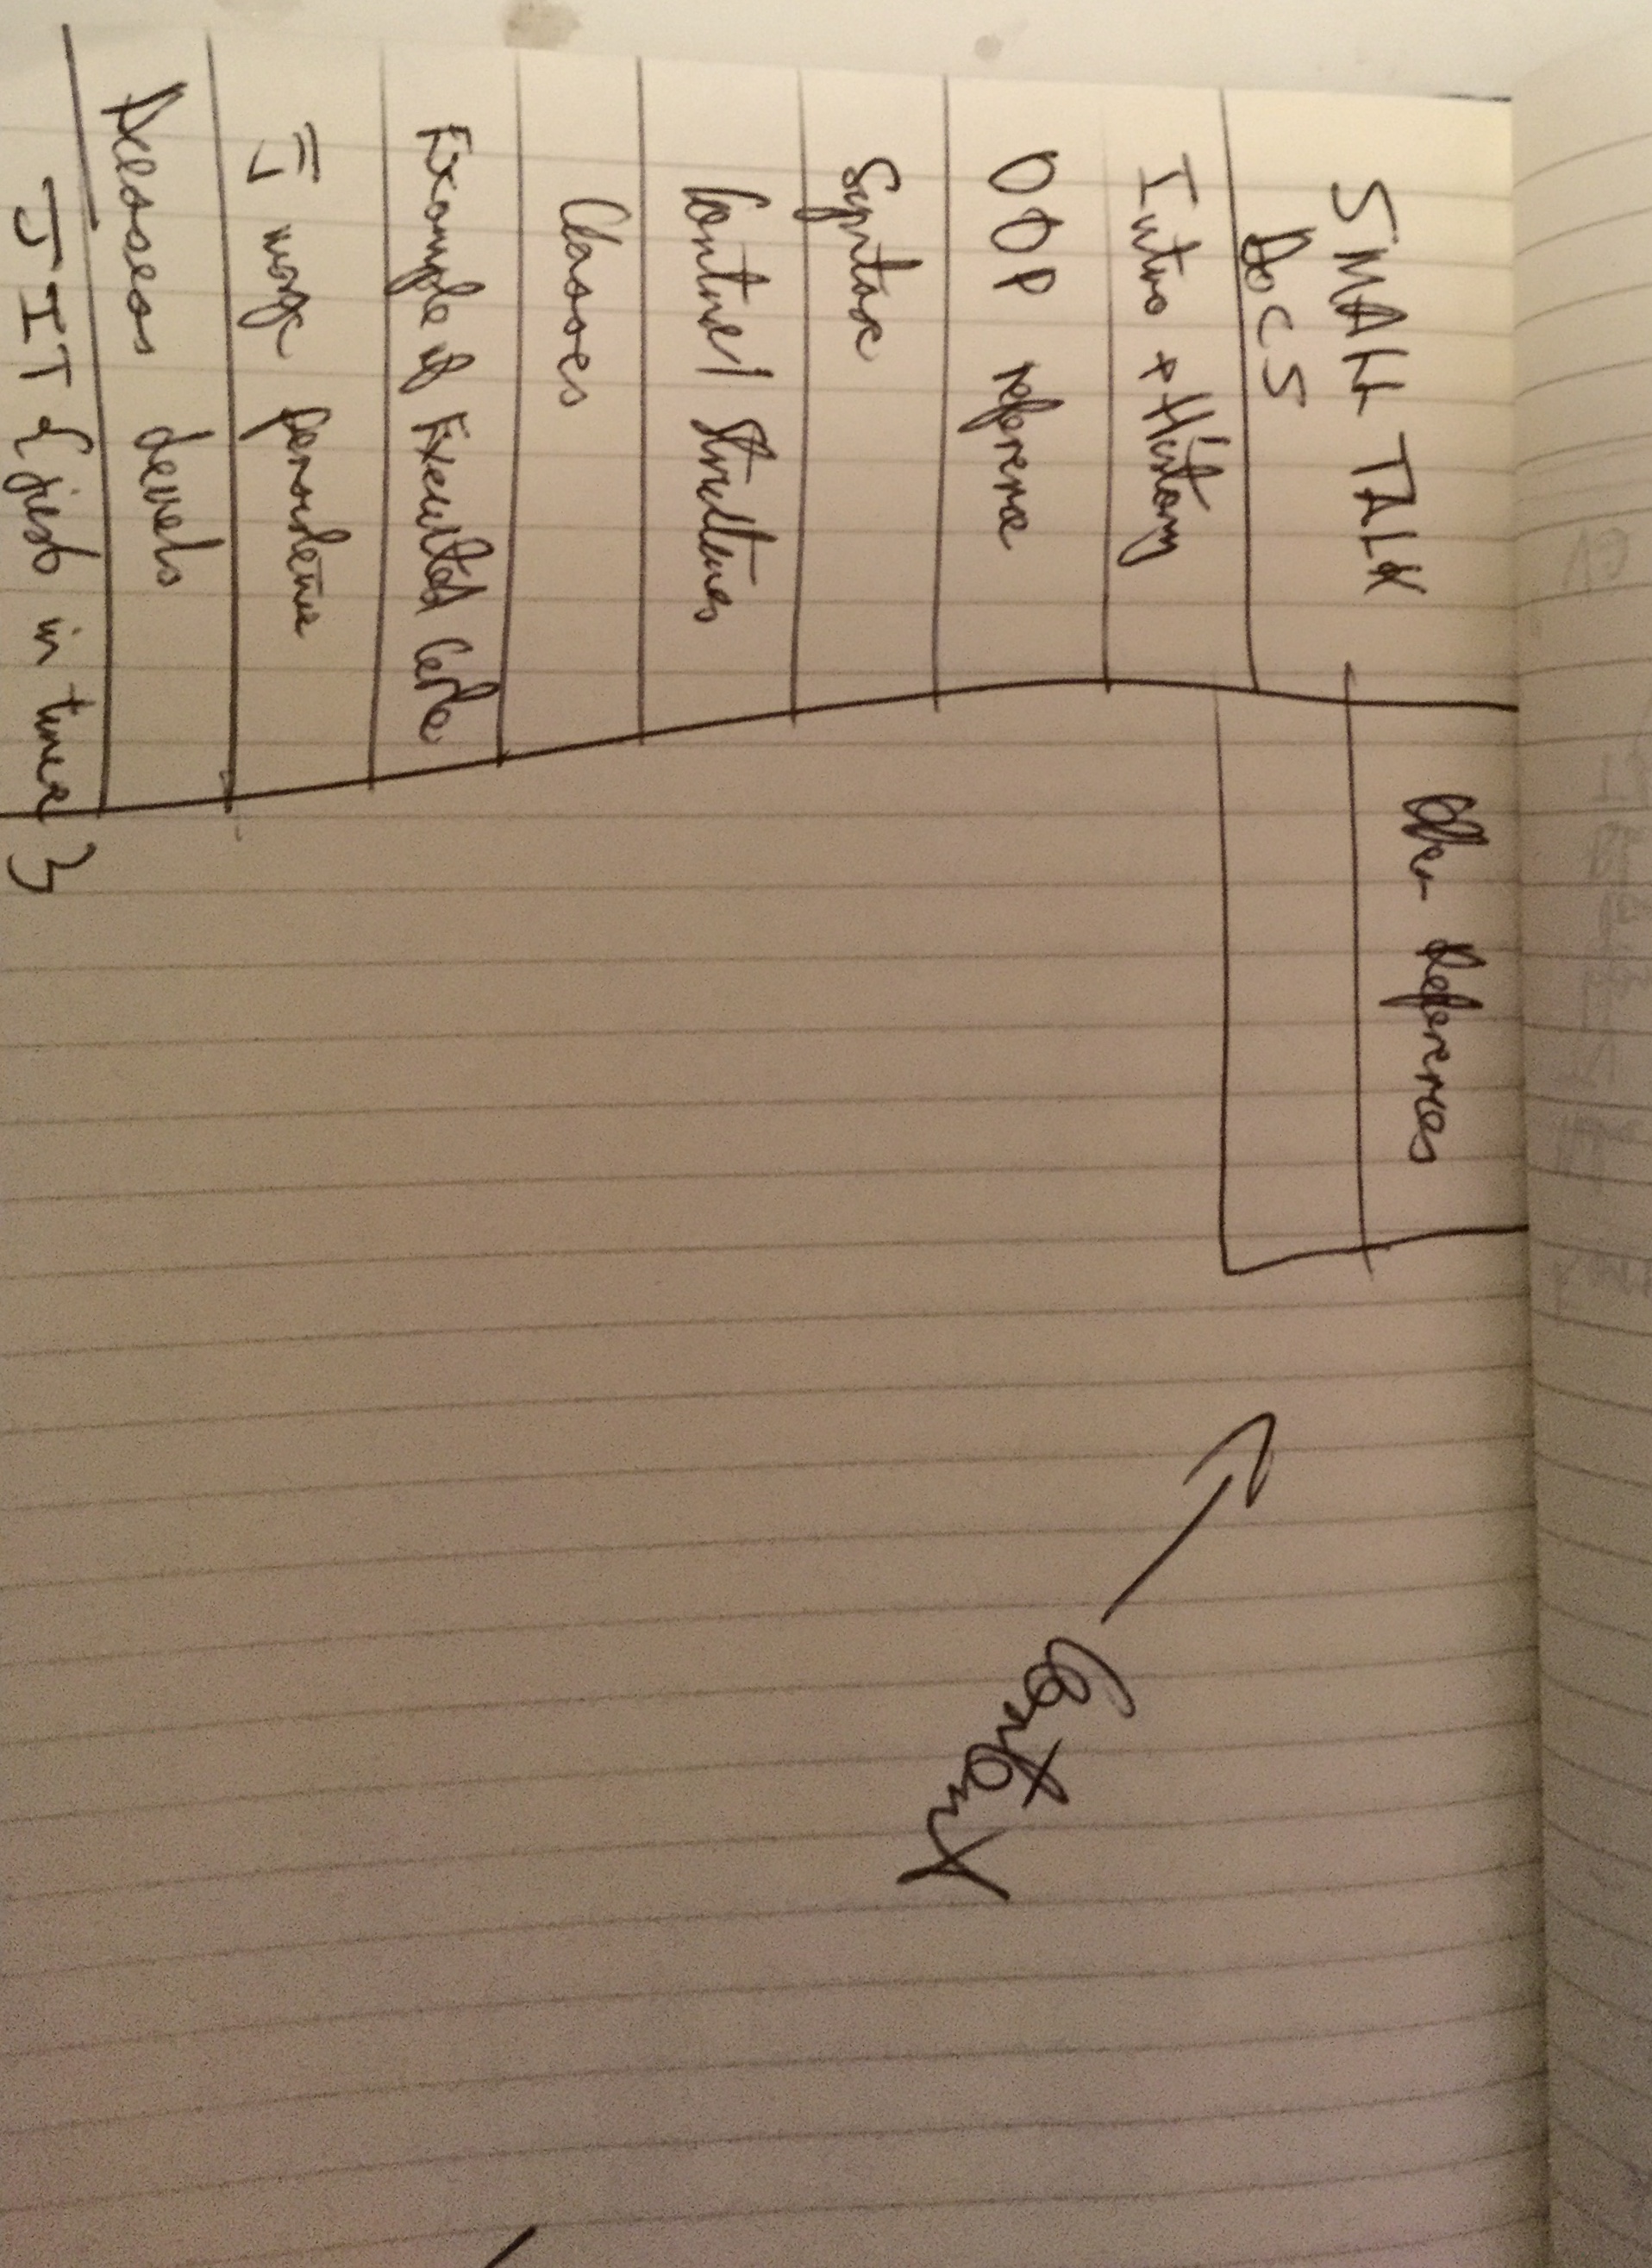 SMALL TALK
DOCS
Intro + History
OOP reference
Syntax
Control Structures
Classes
Example of Executed Code
Image persistence
Access levels
JIT {just in time}
Other References
Content